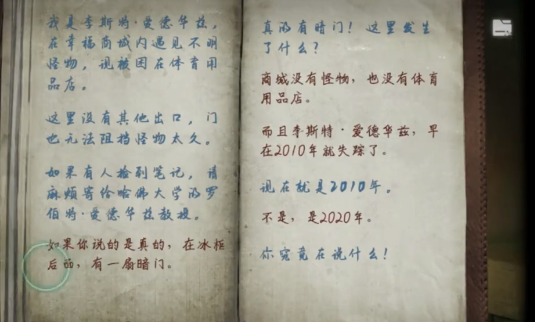 我是李斯特·爱德华兹，
在幸福商城内遇见不明
怪物，现被困在体育用
品店。
这里没有其他出口，门
也无法阻挡怪物太久。
如果有人捡到笔记，请
麻烦寄给哈佛大学的罗
伯特·爱德华兹教授。
如果你说的是真的，在冰柜
后面，有一扇暗门。
真的有暗门！这里发生
了什么？
商城没有怪物，也没有体育
用品店。
而且李斯特·爱德华兹，早
在2010年就失踪了。
现在就是2010年。
不是，是2020年。
你究竟在说什么！